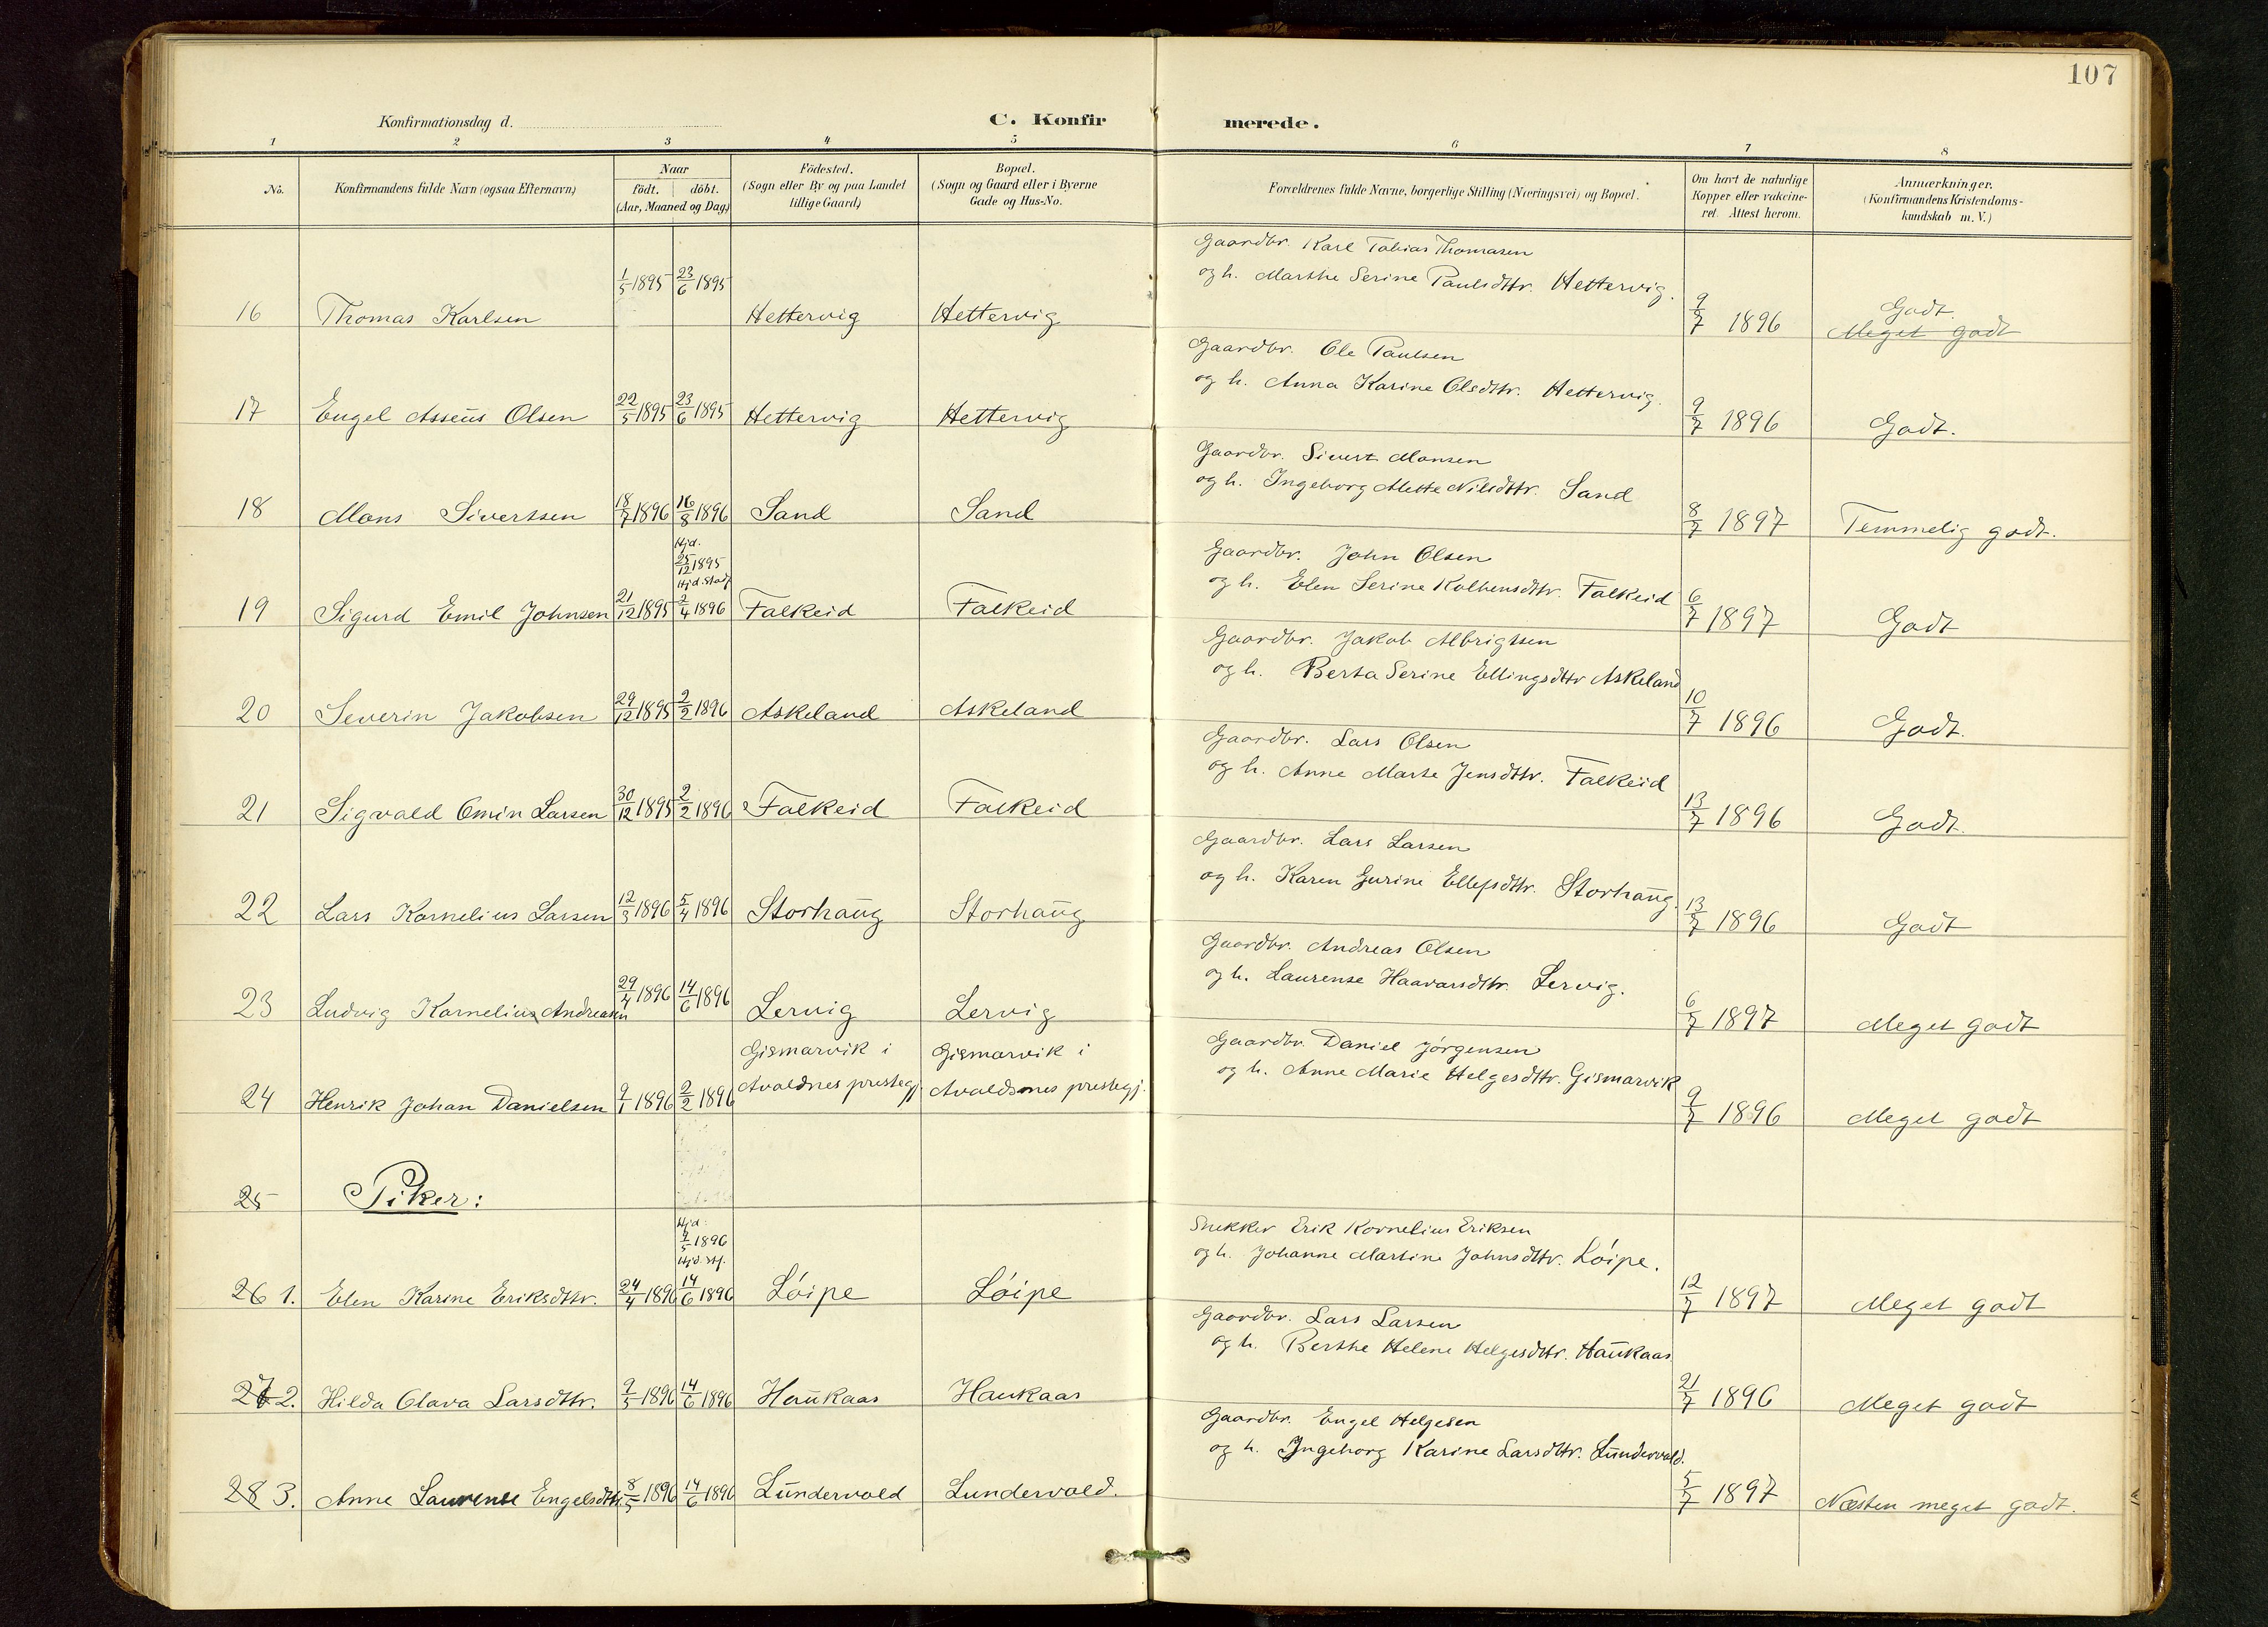 107
Konfirmationsdag d.
C. Konfirmerede.
1 2 3 4 5 6 7 8
No.
Konfirmandens fulde Navn (ogsaa Efternavn)
Naar
födt. döbt.
(Aar, Maaned og Dag)
Födested.
(Sogn eller By og paa Landet
tillige Gaard)
Bopæl.
(Sogn og Gaard eller i Byerne
Gade og Hus-No.
Forældrenes fulde Navne, borgerlige Stilling (Næringsvei) og Bopæl.
Om havt de naturlige
Kopper eller vakcine-
ret. Attest herom.
Anmærkninger.
(Konfirmandens Kristendoms-
kundskab m. V.)
Gaardbr. Karl Tobias Thomasen
og h. Marthe Serine Paulsdttr. Hettervig.
16 Thomas Karlsen 1/5 1895 23/6 1895 Hettervig Hettervig 9/7 1896 Godt.
Meget godt
Gaardbr. Ole Paulsen
og h. Anna Karine Olsdttr. Hettervig.
17 Engel Asseus Olsen 22/5 1895 23/6 1895 Hettervig Hettervig 9/7 1896 Godt.
Gaardbr. Sivert Monsen
og h. Ingeborg Mette Nilsdttr. Sand
18 Mons Sivertsen 18/7 1896 16/8 1896 Sand Sand 8/7 1897 Temmelig godt.
Hjd.
25/12 1895
Hjd. Stadf
Gaardbr. John Olsen
og h. Elen Serine Kolbensdttr. Falkeid
19 Sigurd Emil Johnsen 21/12 1895 2/4 1896 Falkeid Falkeid 6/7 1897 Godt
Gaardbr. Jakob Albrigtsen
og h. Berta Serine Ellingsdttr Askeland
20 Severin Jakobsen 29/12 1895 2/2 1896 Askeland Askeland 10/7 1896 Godt.
Gaardbr. Lars Olsen
og h. Anne Marte Jensdttr. Falkeid
21 Sigvald Omin Larsen 30/12 1895 2/2 1896 Falkeid Falkeid 13/7 1896 Godt.
Gaardbr. Lars Larsen
og h. Karen Gurine Ellefsdttr. Storhaug.
22 Lars Kornelius Larsen 12/3 1896 5/4 1896 Storhaug Storhaug 13/7 1896 Godt
Gaardbr. Andreas Olsen
og h. Laurense Haavarsdttr. Lervig.
23 Ludvig Kornelius Andreasen 29/4 1896 14/6 1896 Lervig Lervig 6/7 1897 Meget godt
Gismarvik i Gismarvik i
Gaardbr. Daniel Jørgensen
og h. Anne Marie Helgesdttr. Gismarvik
24 Henrik Johan Danielsen 9/1 1896 2/2 1896 Avaldnes prestegj. Avaldsnes prestegj. 9/7 1896 Meget godt
25 Piker:
Hjd.
4/5 1896
Hjd. stf.
Snekker Erik Kornelius Eriksen
og h. Johanne Martine Johnsdttr. Løipe.
26 1. Elen Karine Eriksdttr. 24/4 1896 14/6 1896 Løipe Løipe 12/7 1897 Meget godt
Gaardbr. Lars Larsen
og h. Berthe Helene Helgesdttr. Haukaas
27 2. Hilda Olava Larsdttr. 9/5 1896 14/6 1896 Haukaas Haukaas 21/7 1896 Meget godt
Gaardbr. Engel Helgesen
og h. Ingeborg Karine Larsdttr. Lundervold.
28 3. Anne Laurense Engelsdttr. 8/5 1896 14/6 1896 Lundervold Lundervold. 5/7 1897 Næsten meget godt.